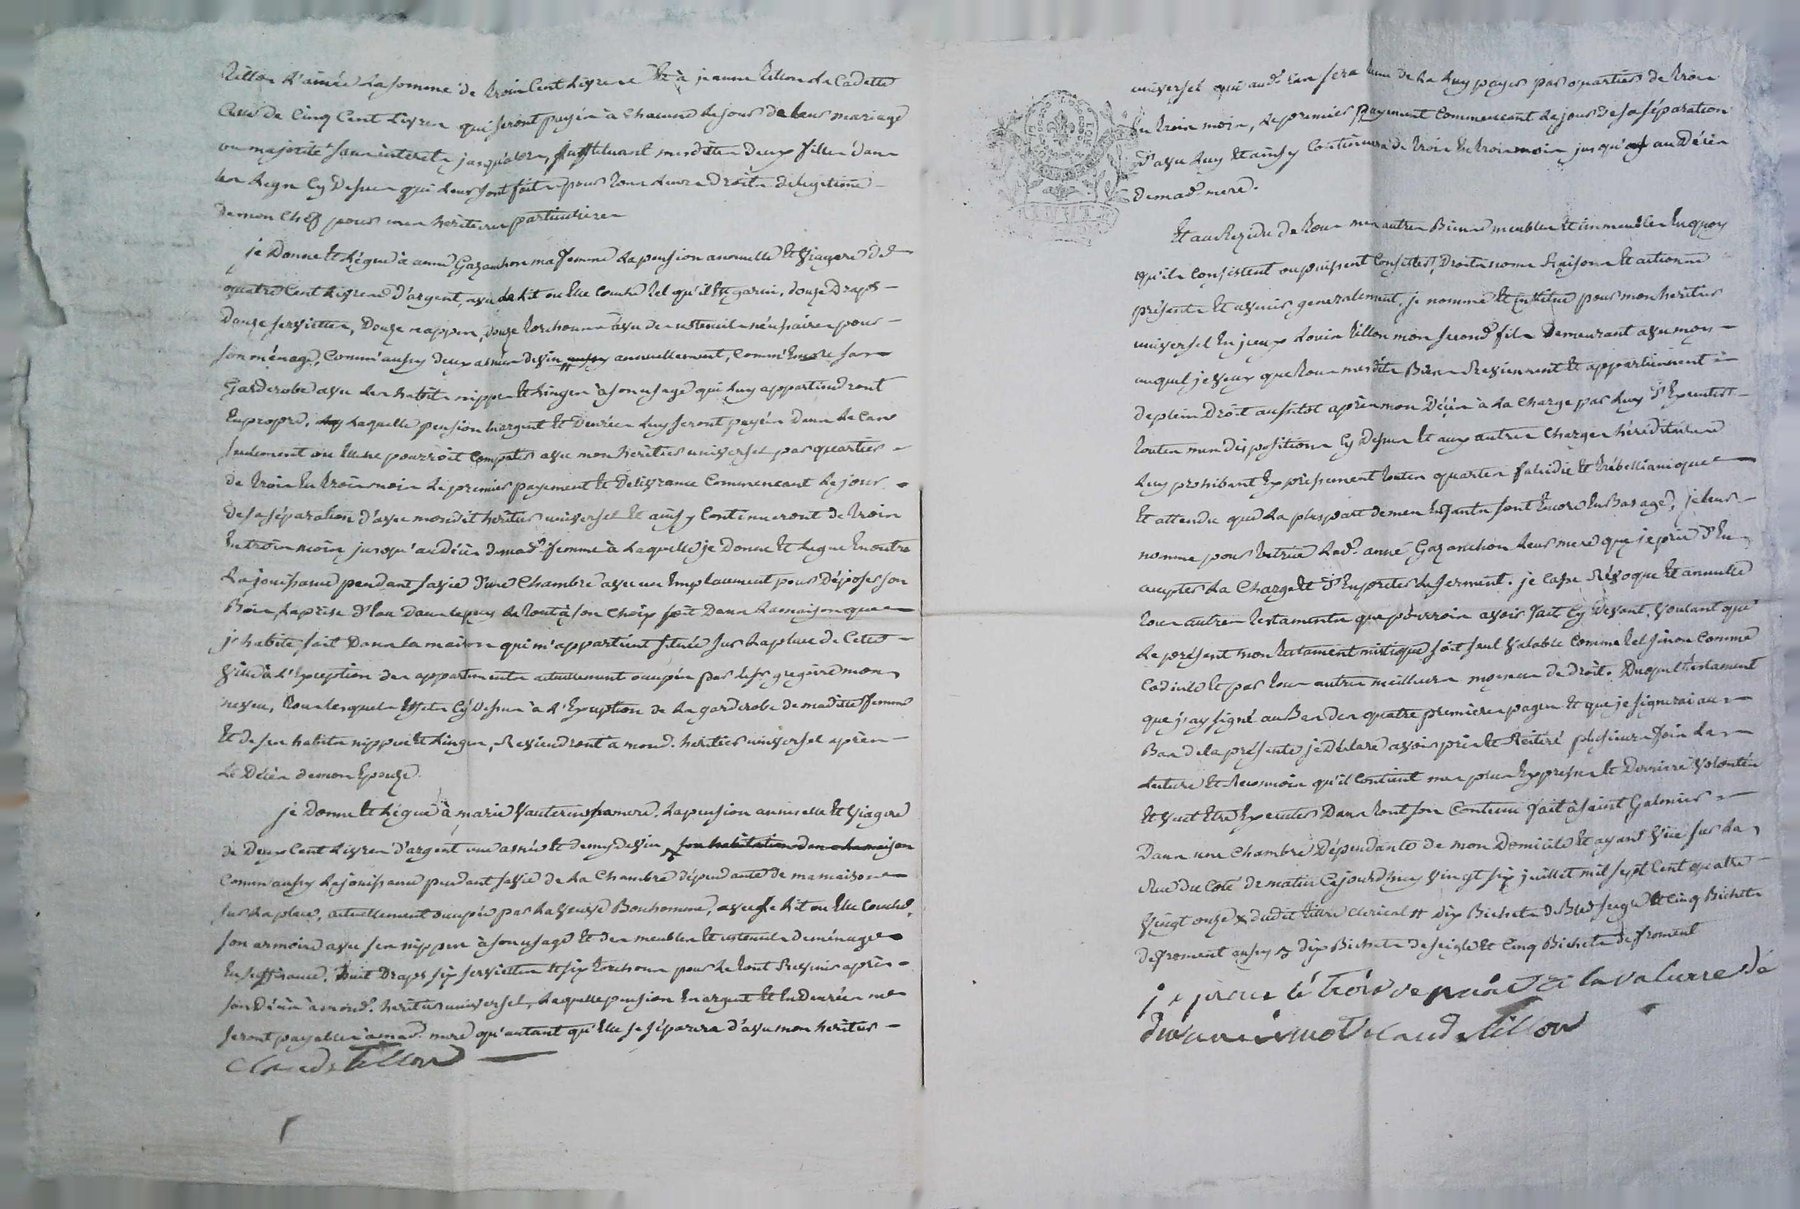 tillon l'ainée la somme de trois cent livres Et à jeanne tillon la Cadette
Celle de Cinq Cent livres qui seront payés à chacune le jour de leur mariage
ou majorité sans interets jusqu'alors, instituant mesdittes deux filles dans
les legs Cy dessus qui leur sont faits pour tous leurs droits de legitime
de mon chef pour mes heritieres particulieres
je Donne Et légue à anne Gazanchon ma femme la pension annuelle Et viagere de
quatre Cent livres d'argent, avec le lit ou Elle couche tel qu'il Est garni, douze Draps
Douze serviettes, Douze nappes, douze torchons avec des ustenciles nécessaires pour
son ménage, Comm'aussy deux asnées de vin annuellement, Comm'Encore sa
Garderobe avec les habits nippes Et linges à son usage qui luy appartiendront
En propre, laquelle pension En argent Et Denrées luy seront payés Dans le Cas
seulement ou Elle ne pourroit Compatir avec mon heritier universel par quartier
de trois En trois mois le premier payement Et Delivrance Commencant le jour
de sa séparation d'avec mondit heritier universel Et ainsy Continueront de trois
En trois mois jusqu'au Décès de mad.e femme à laquelle je Donne Et legue En outre
la jouissance pendant sa vie d'une Chambre avec un Emplacement pour Déposer son
Bois, la prise d'Eau Dans le puy le tout à son Choix soit Dans la maison que
j'habite, soit Dans la maison qui m'appartient située sur la place de Cette
ville à l'Exception des appartements actuellement occupés par le sr gregoire mon
neveu, tous lesquels Effets Cy dessus à l'Exception de la garderobe de maditte femme
Et de ses habits nippes Et linges, Reviendront a mond. heritier universel après
le Décès de mon Epouse.
je Donne Et légue à marie vauterin ma mere, la pension annuelle Et viagere
de Deux Cent livres d'argent une asnée Et demy de vin, son habitation dans ma maison
Comm'aussy la jouissance pendant sa vie de la Chambre dépendante de ma maison
sur la place, actuellement occupée par la veuve Bonhomme, avec le lit ou Elle Couche,
son armoire avec ses nippes à son usage Et des meubles Et ustenciles de ménage
En suffisance, huit Draps six serviettes Et six torchons pour le tout Revenir après
son Décès à mond. heritier universel, laquelle pension En argent Et En Denrées ne
seront payables à mad. mere qu'autant qu'Elle se séparera d'avec mon heritier
claude tillon
universel qui aud. cas sera tenu de la luy payer par quartier de trois
En trois mois, le premier Payement Commencant le jour de sa séparation
d'avec luy Et ainsy Continuera de trois En trois mois jusqu'au Décès
de mad. mere.
Et au Rezidu de tous mes autres Biens meubles Et immeubles En quoy
qu'ils Consistent ou puissent Consister, Droits noms Raisons Et actions
présents Et avenir generalement, je nomme Et institue pour mon heritier
universel En jeux Louis tillon mon second fils Demeurant avec moy
auquel je veux que tous mesdits Biens Reviennent Et appartiennent
de plein Droit aussitot après mon Décès à la Charge par luy d'Executer
toutes mes dispositions Cy Dessus Et aux autres Charges héréditaires
luy prohibant Expressement toutes quartes falcidie Et trébellianique
Et attendu que la pluspart de mes Enfants sont Encore En Bas age, je leur
nomme pour tutrice lad. anne Gazanchon leur mere que je prie d'En
accepter la Charge Et d'En preter le serment. je Casse Révoque Et annulle
tous autres testaments que pourrois avoir fait Cy devant, voulant que
le présent mon testament mistique soit seul valable Comme tel sinon Comme
Codicile Et par tous autres meilleurs moyens de droit. Duquel testament
que j'ay signé au Bas des quatre premieres pages Et que je signerai au
Bas de la présente je déclare avoir pris Et Réiteré plusieurs fois la
lecture Et Reconnois qu'il Contient mes plus Expresses Et Dernieres volontés
Et veut Etre Executés Dans tout son Contenu fait à saint Galmier
Dans une Chambre Dépendante de mon Domicile Et ayant vue sur la
Rue du Coté de matin Cejourd'huy vingt six juillet mil sept Cent quatre
vingt onze x dudit titre clerical # dix Bichets de Bled seigle Et Cinq Bichets
de froment aussy # dix Bichets de seigle Et Cinq Bichets de froment
claude tillon